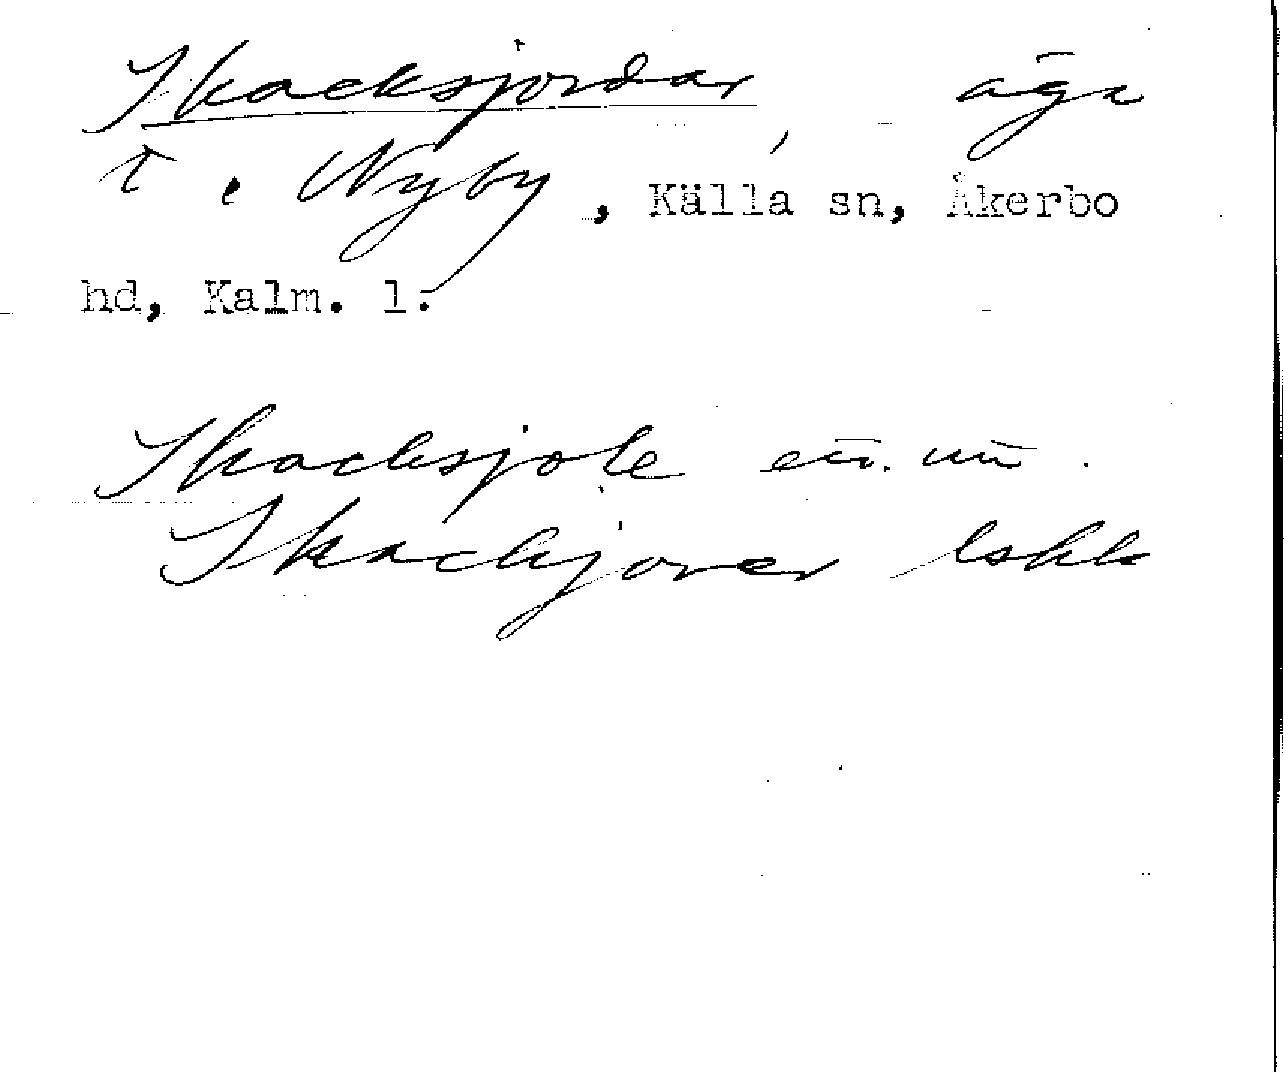 Skacksjordar, äga
t. Nyby, Källa sn, Åkerbo
hd, Kalm. l.
Skacksjole
Skackjorer lskk